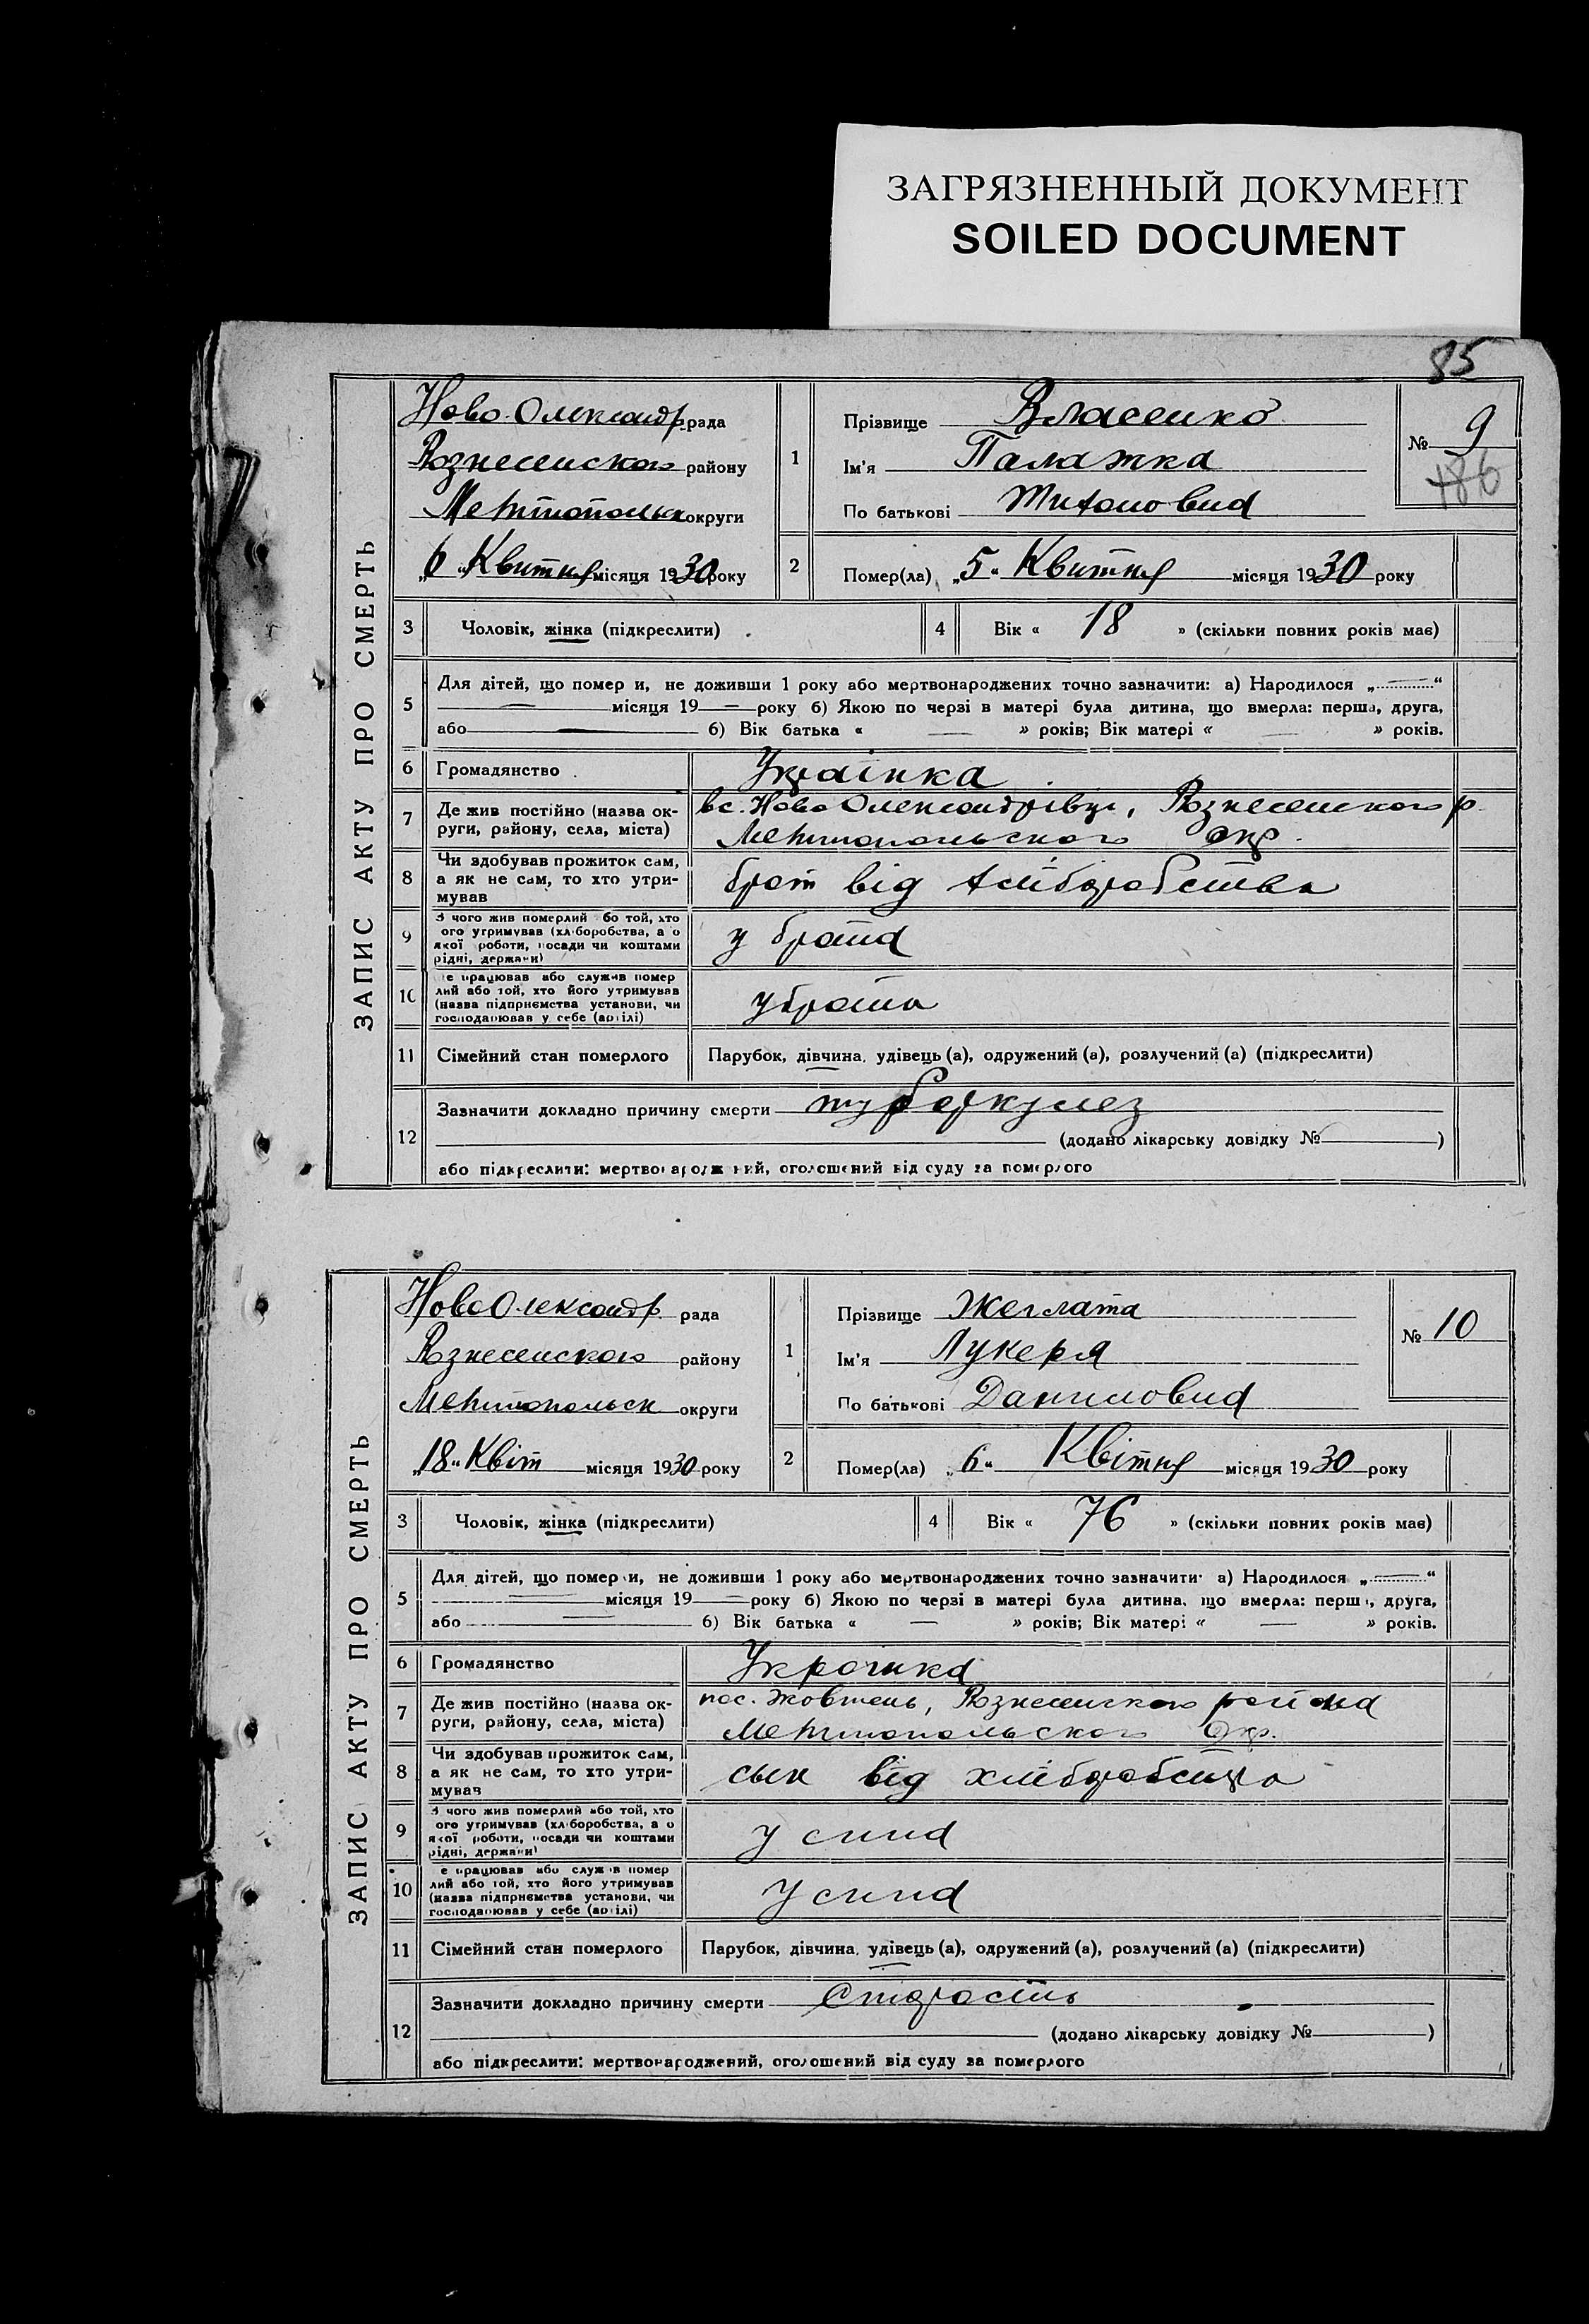 ЗАГРЯЗНЕННЫЙ ДОКУМЕНТ
SOILED DOCUMENT
85
ЗАПИС АКТУ ПРО СМЕРТЬ
Ново-Олександр рада
Вознесенского району
Метитопольск округи
„6" Квитня місяця 1930 року
1
Прізвище Власенко
Ім'я Палажка
По батькові Титовид
№ 9
186
2
Помер(ла) „5" Квитня місяця 1930 року
3 Чоловік, жінка (підкреслити)
4 Вік « 18 » (скільки повних років має)
5 Для дітей, що помер и, не доживши 1 року або мертвонароджених точно зазначити: а) Народилося „ — "
— місяця 19 — року б) Якою по черзі в матері була дитина, що вмерла: перша, друга,
або — б) Вік батька « — » років; Вік матері « — » років.
6 Громадянство Українка
7 Де жив постійно (назва ок- вс. Ново Олександрівци, Вознесенского р.
руги, району, села, міста) Метитопольского окр.
8 Чи здобував прожиток сам,
а як не сам, то хто утри- брат від хліборобства
мував
9 З чого жив померлий або той, хто
ого утримував (хліборобства, а о
якої роботи, посади чи коштами у брата
рідні, держави)
10 е працював або служив помер
лий або той, хто його утримував
(назва підприємства установи, чи у брата
господарював у себе (артілі)
11 Сімейний стан померлого Парубок, дівчина, удівець (а), одружений (а), розлучений (а) (підкреслити)
12 Зазначити докладно причину смерти туберкулез
(додано лікарську довідку № )
або підкреслити: мертвонароджений, оголошений від суду за померлого
ЗАПИС АКТУ ПРО СМЕРТЬ
Ново Олександр. рада
Вознесенского району
Метитопольск округи
„18" Квіт місяця 1930 року
1
Прізвище Жеглата
Ім'я Лукеря
По батькові Даниловид
№ 10
2
Помер(ла) „6" Квітня місяця 1930 року
3 Чоловік, жінка (підкреслити)
4 Вік « 76 » (скільки повних років має)
5 Для дітей, що помер и, не доживши 1 року або мертвонароджених точно зазначити: а) Народилося „ — "
— місяця 19 — року б) Якою по черзі в матері була дитина, що вмерла: перша, друга,
або — б) Вік батька « — » років; Вік матері « — » років.
6 Громадянство Українка
7 Де жив постійно (назва ок- пос. Жовтень, Вознесенского района
руги, району, села, міста) Метитопольского Окр.
8 Чи здобував прожиток сам,
а як не сам, то хто утри- сын від хліборобства
мував
9 З чого жив померлий або той, хто
ого утримував (хліборобства, а о
якої роботи, посади чи коштами у сина
рідні, держави)
10 е працював або служив помер
лий або той, хто його утримував
(назва підприємства установи, чи у сина
господарював у себе (артілі)
11 Сімейний стан померлого Парубок, дівчина, удівець (а), одружений (а), розлучений (а) (підкреслити)
12 Зазначити докладно причину смерти старость
(додано лікарську довідку № )
або підкреслити: мертвонароджений, оголошений від суду за померлого